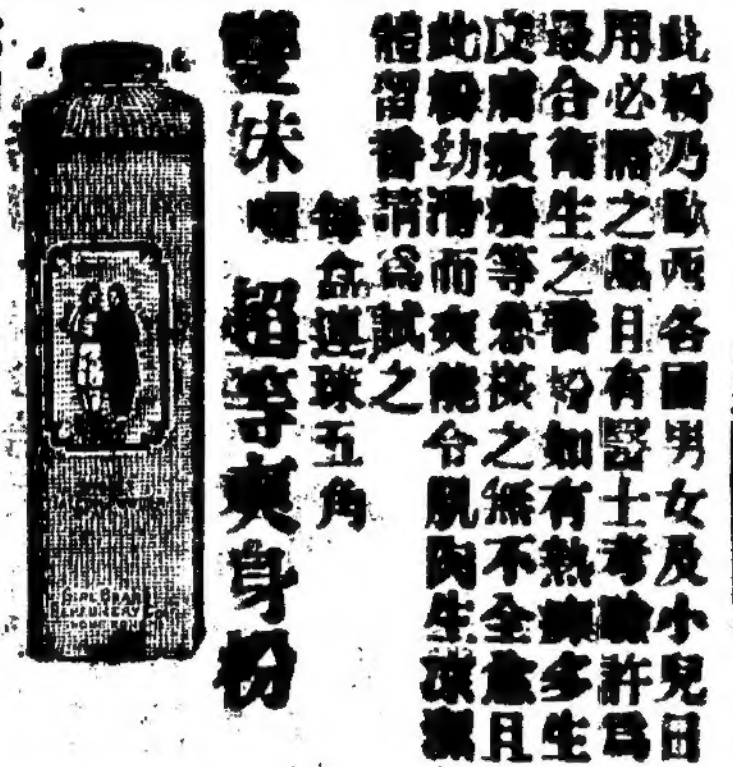 此粉乃歐西各國男女及小兒日
用必需之品日有醫士考驗許爲
最合衛生之香粉如有熱痱多生
皮膚痕癢等患搽之無不全愈且
此粉幼滑而爽能令肌肉生凉潔
體留香請爲試之
每盒連球五角
雙妹嚜 超等爽身粉
GIRL BRAND
PERFUMERY
HONG KONG